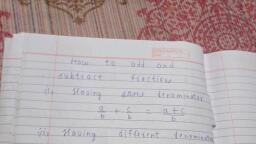 How to add and
subtract fractions
(i) Having same denominator
a/b + c/b = a+c/b
(ii) Having different denominator